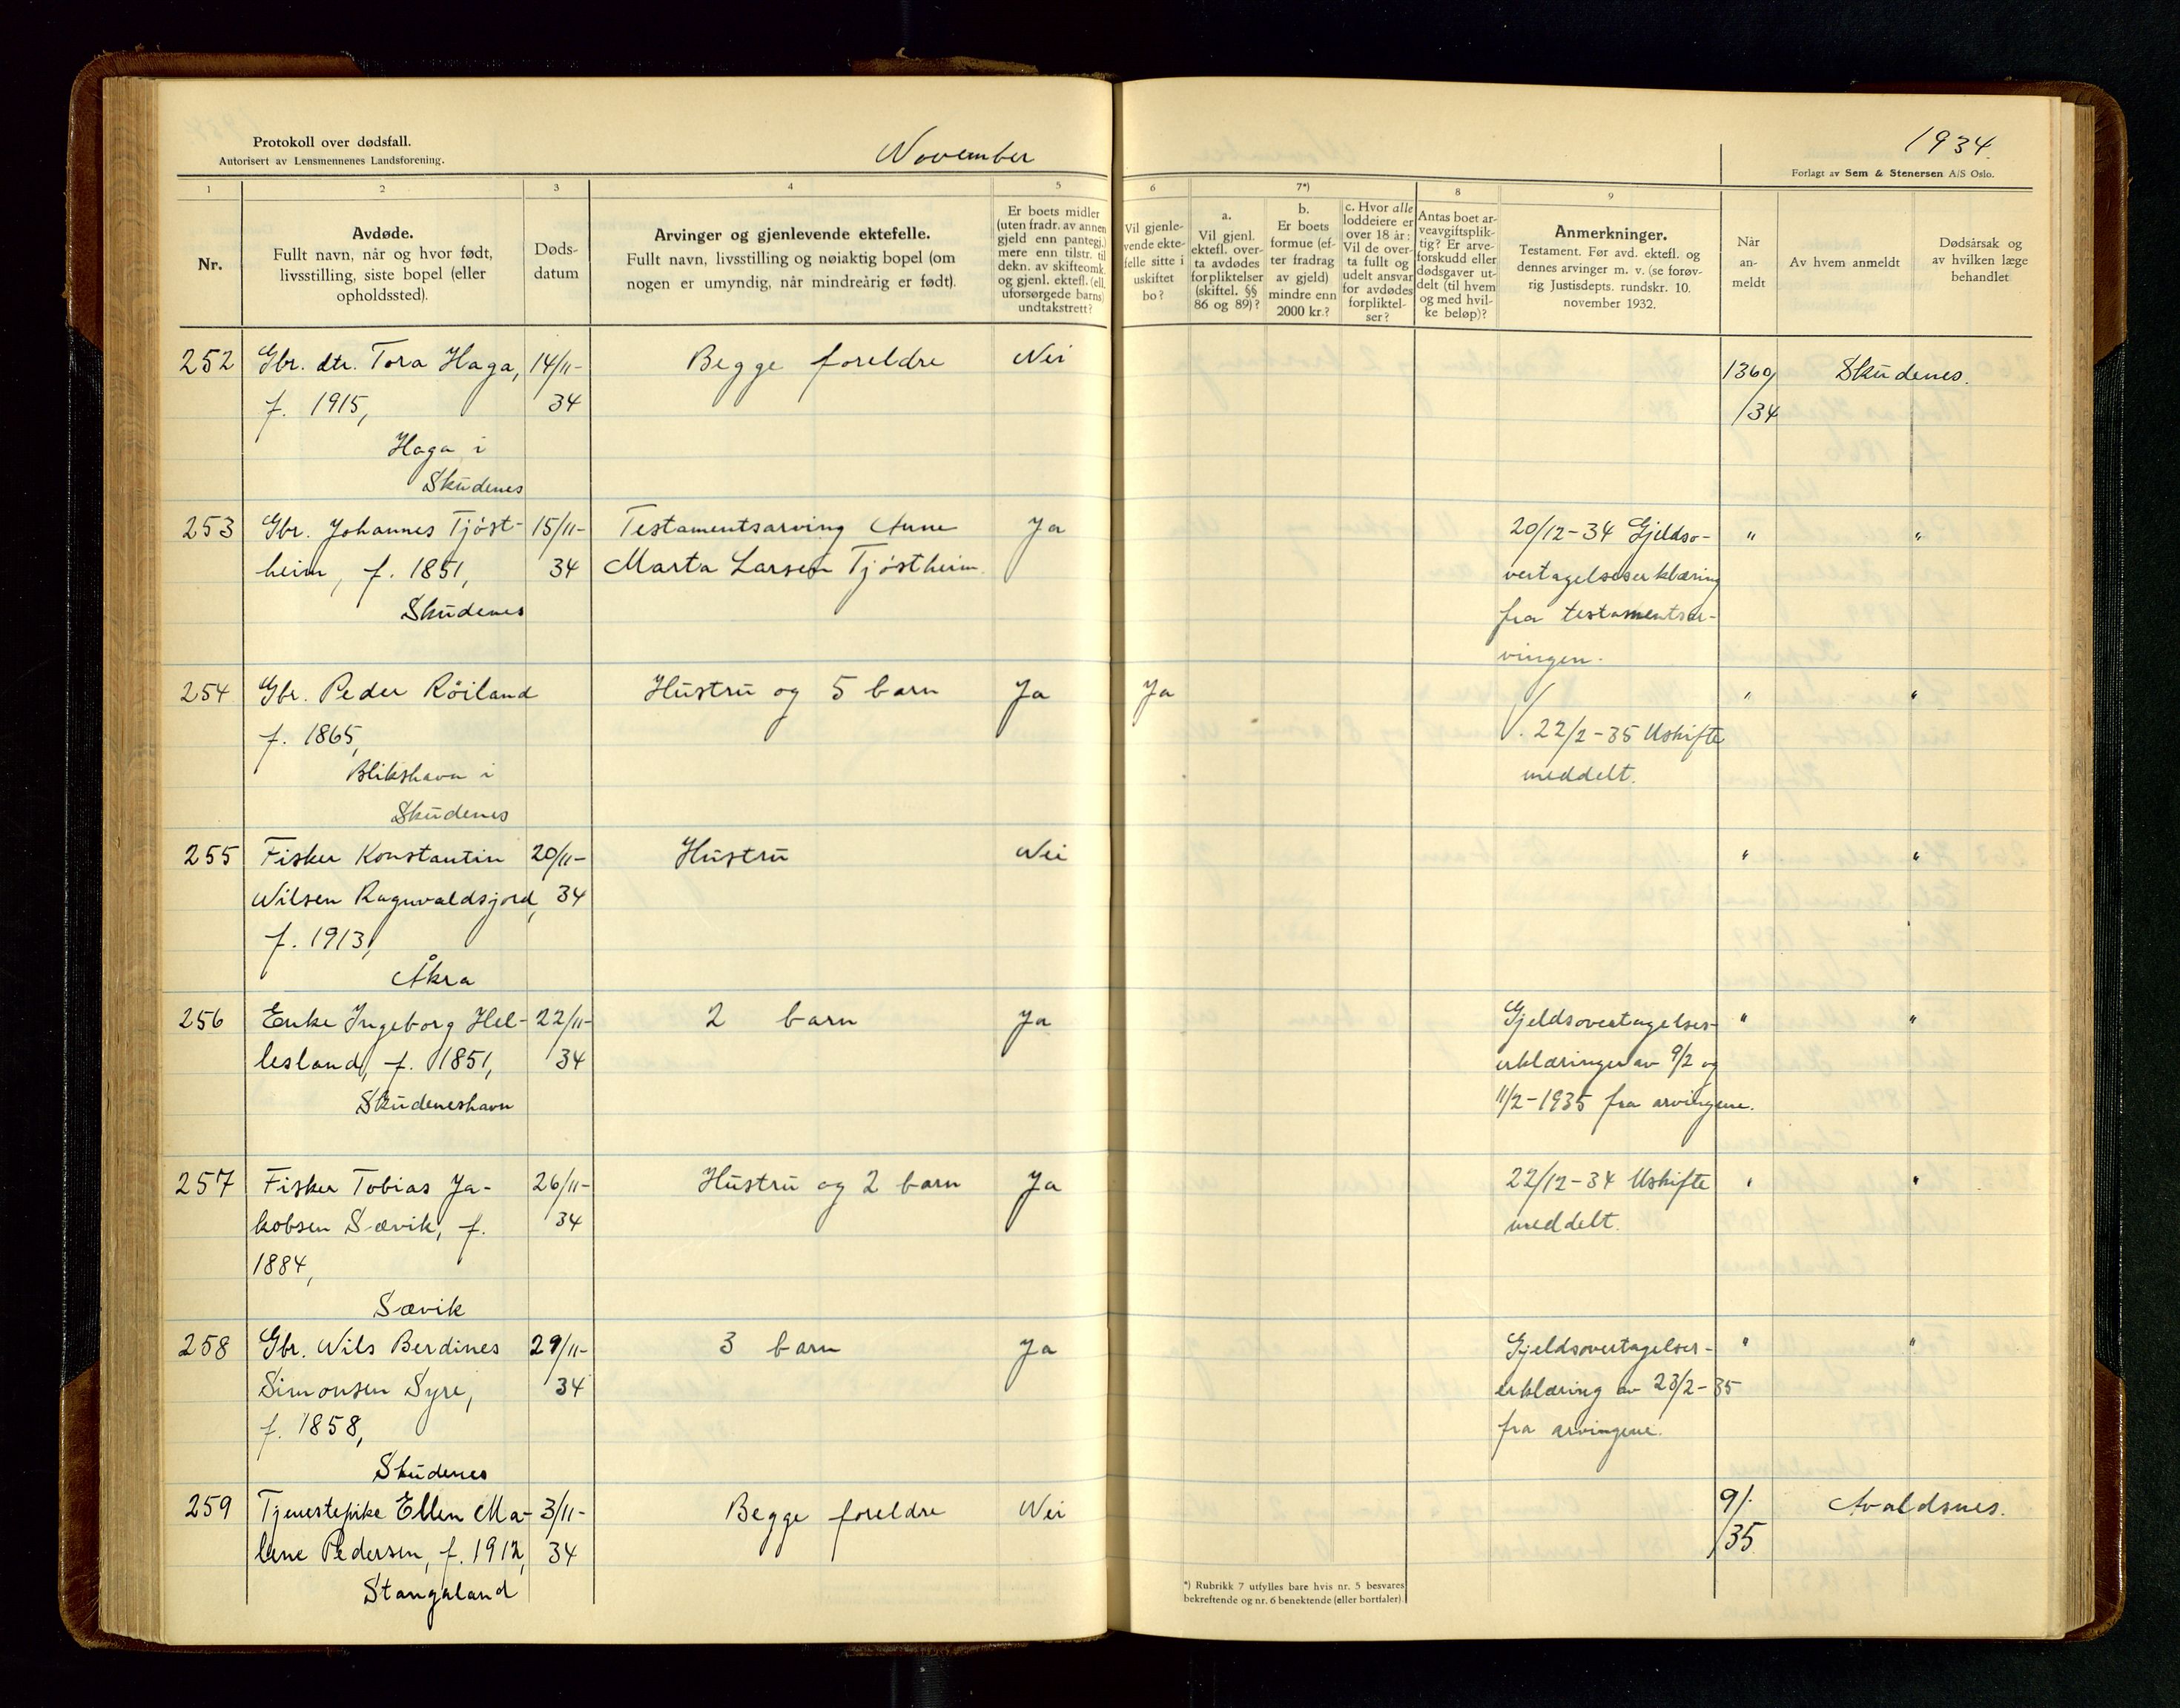 Protokoll over dødsfall.
Autorisert av Lensmennenes Landsforening.
November
1934.
Forlagt av Sem & Stenersen A/S Oslo.
1
2
3
4
5
6
7*)
8
9
Nr.
Avdøde.
Fullt navn, når og hvor født,
livsstilling, siste bopel (eller
opholdssted).
Døds-
datum
Arvinger og gjenlevende ektefelle.
Fullt navn, livsstilling og nøiaktig bopel (om
nogen er umyndig, når mindreårig er født).
Er boets midler
(uten fradr. av annen
gjeld enn pantegj.)
mere enn tilstr. til
dekn. av skifteomk.
og gjenl. ektefl. (ell.
uforsørgede barns)
undtakstrett?
Vil gjenle-
vende ekte-
felle sitte i
uskiftet
bo?
a.
Vil gjenl.
ektefl. over-
ta avdødes
forpliktelser
(skiftel. §§
86 og 89)?
b.
Er boets
formue (ef-
ter fradrag
av gjeld)
mindre enn
2000 kr.?
c. Hvor alle
loddeiere er
over 18 år:
Vil de over-
ta fullt og
udelt ansvar
for avdødes
forpliktel-
ser?
Antas boet ar-
veavgiftsplik-
tig? Er arve-
forskudd eller
dødsgaver ut-
delt (til hvem
og med hvil-
ke beløp)?
Anmerkninger.
Testament. Før avd. ektefl. og
dennes arvinger m. v. (se forøv-
rig Justisdepts. rundskr. 10.
november 1932.
Når
an-
meldt
Av hvem anmeldt
Dødsårsak og
av hvilken læge
behandlet
252 Gbr. dtr. Tora Haga, 14/11- Begge foreldre Nei 1360/ Skudenes.
f. 1915, 34 /34
Haga i
Skudenes
253 Gbr. Johannes Tjøst- 15/11- Testamentsarving Anne Ja 20/12-34 Gjeldso- " "
heim, f. 1851, 34 Marta Larsen Tjøstheim. vertagelseserklæring
Skudenes fra testamentsar-
vingen.
254 Gbr. Peder Röiland Hustru og 5 barn Ja Ja " "
f. 1865, 22/2-35 Uskifte
Blikshavn i meddelt.
Skudenes
255 Fisker Konstantin 20/11- Hustru Nei " "
Nilsen Ragnvaldsjord, 34
f. 1913,
Åkra
256 Enke Ingeborg Hel- 22/11- 2 barn Ja Gjeldsovertagelses- " "
lesland, f. 1851, 34 erklæringer av 9/2 og
Skudeneshavn 11/2-1935 fra arvingene.
257 Fisker Tobias Ja- 26/11- Hustru og 2 barn Ja 22/12-34 Uskifte " "
kobsen Sævik, f. 34 meddelt.
1884,
Sævik
258 Gbr. Nils Berdines 29/11- 3 barn Ja Gjeldsovertagelses- " "
Simonsen Syre, 34 erklæring av 23/2-35
f. 1858, fra arvingene.
Skudenes
259 Tjenestepike Ellen Ma- 3/11- Begge foreldre Nei 9/. Avaldsnes.
lene Pedersen, f. 1912, 34 /35
Stangaland
*) Rubrikk 7 utfylles bare hvis nr. 5 besvares
bekreftende og nr. 6 benektende (eller bortfaler)